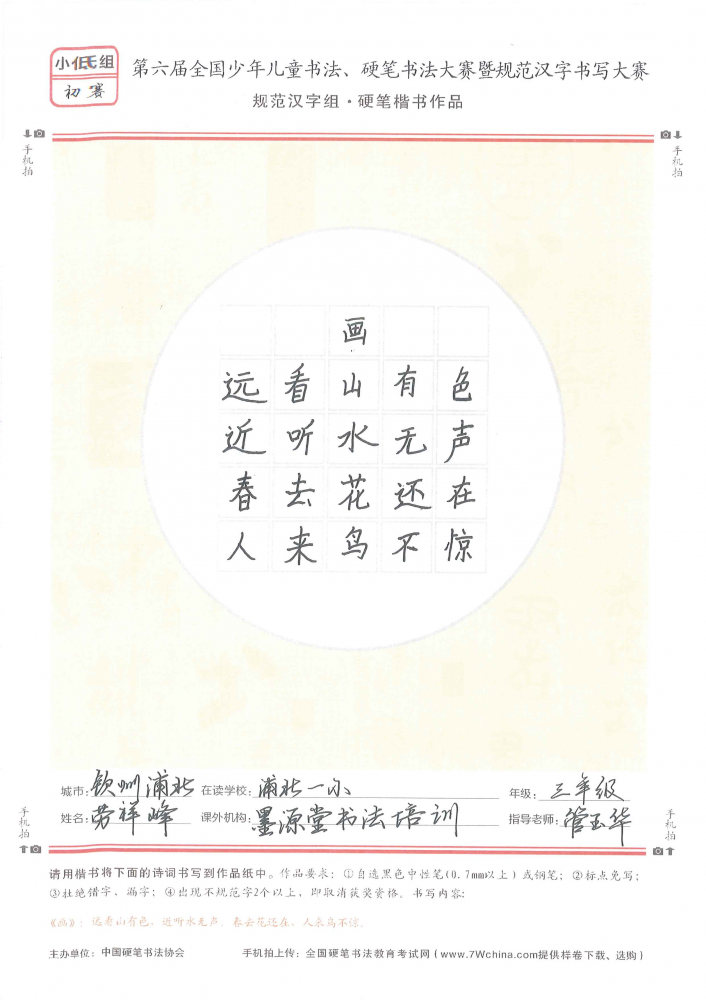 小低组
初赛
第六届全国少年儿童书法、硬笔书法大赛暨规范汉字书写大赛
规范汉字组·硬笔楷书作品
手机拍
手机拍
画
远看山有色
近听水无声
春去花还在
人来鸟不惊
城市:钦州浦北 在读学校:浦北一小 年级:三年级
姓名:劳祥峰 课外机构:墨源堂书法培训 指导老师:管玉华
手机拍
手机拍
请用楷书将下面的诗词书写到作品纸中。作品要求:①自选黑色中性笔(0.7mm以上)或钢笔;②标点免写;
③杜绝错字、漏字;④出现不规范字2个以上,即取消获奖资格。书写内容:
《画》:远看山有色,近听水无声。春去花还在,人来鸟不惊。
主办单位:中国硬笔书法协会 手机拍上传:全国硬笔书法教育考试网(www.7Wchina.com提供样卷下载、选购)